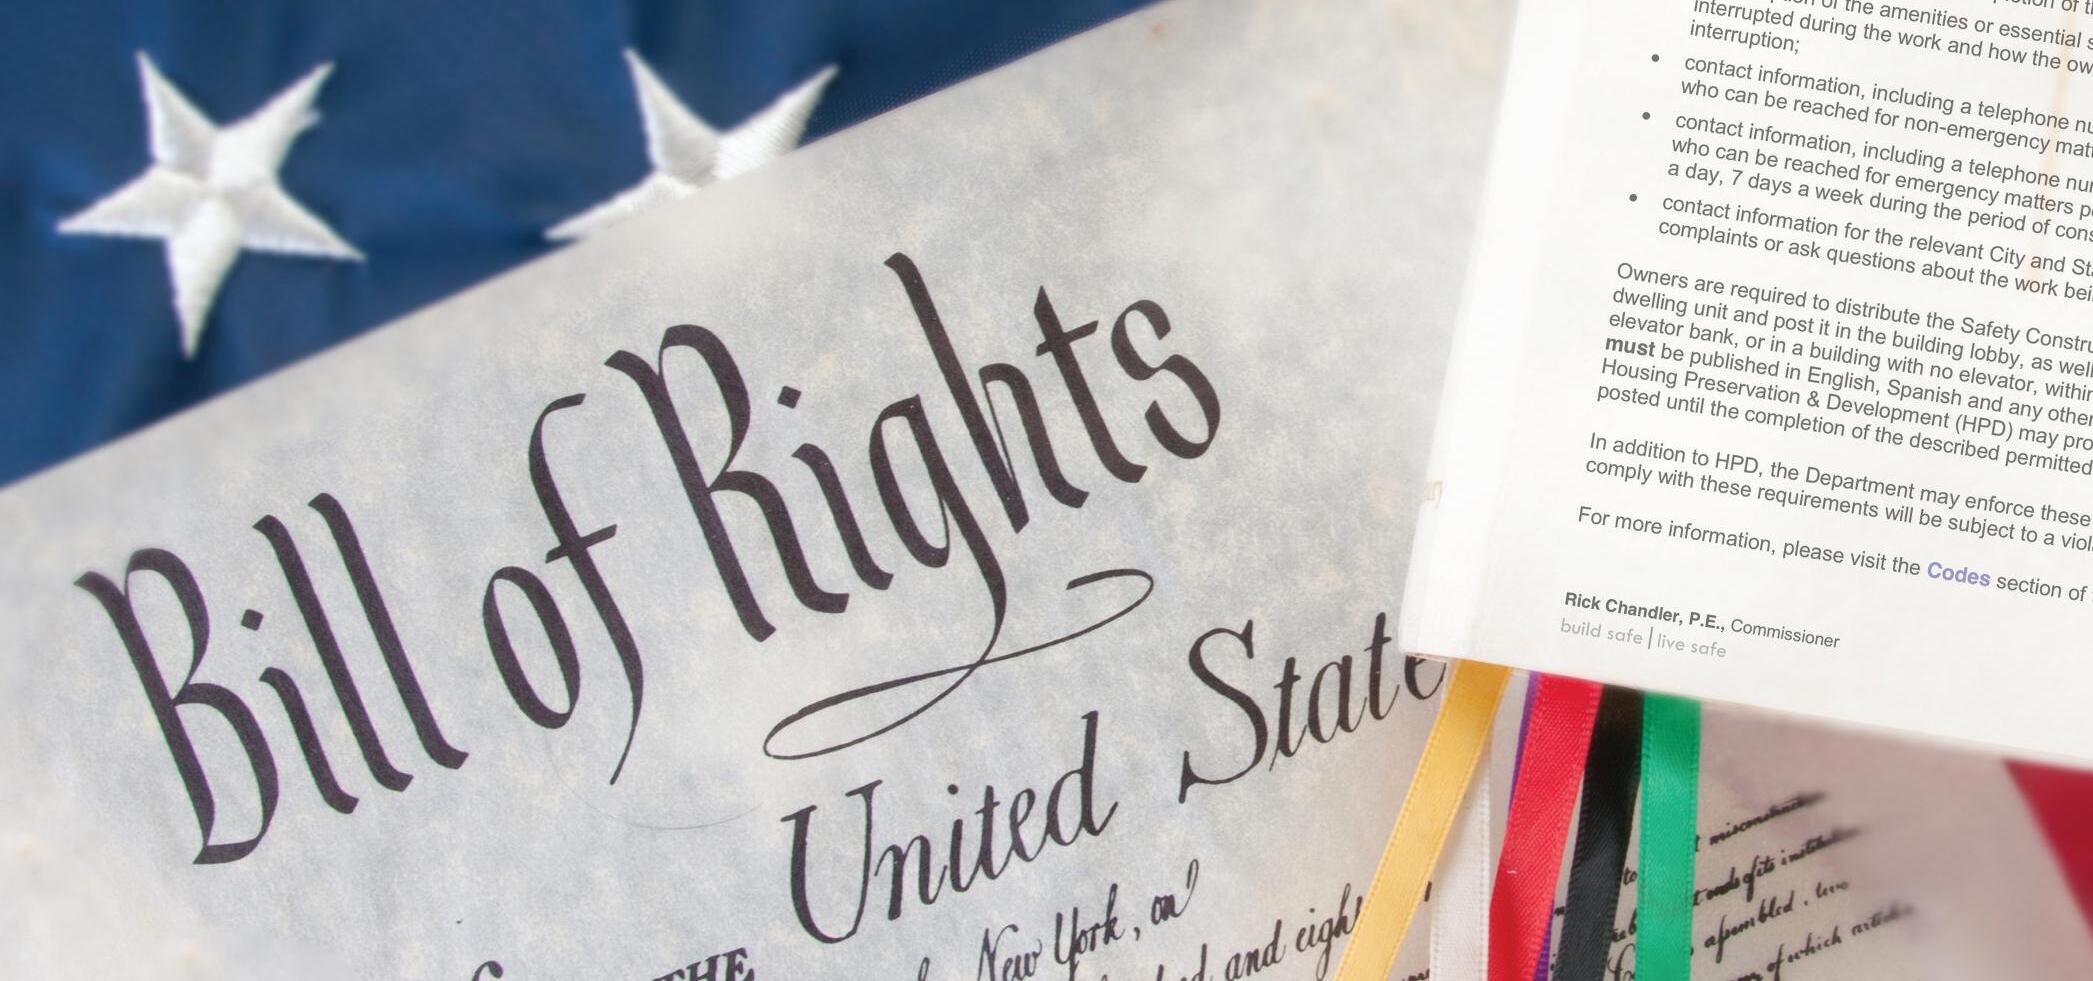 Bill of Rights
United State
THE
New York, on
and eigh
of the amenities or essential
interrupted during the work and how the ow
interruption;
• contact information, including a telephone nu
who can be reached for non-emergency mat
• contact information, including a telephone nu
who can be reached for emergency matters p
a day, 7 days a week during the period of cons
• contact information for the relevant City and St
complaints or ask questions about the work bei
Owners are required to distribute the Safety Constru
dwelling unit and post it in the building lobby, as well
elevator bank, or in a building with no elevator, within
must be published in English, Spanish and any other
Housing Preservation & Development (HPD) may pro
posted until the completion of the described permitted
In addition to HPD, the Department may enforce these
comply with these requirements will be subject to a viol
For more information, please visit the Codes section of
Rick Chandler, P.E., Commissioner
build safe | live safe
ends of its
assembled,
of which